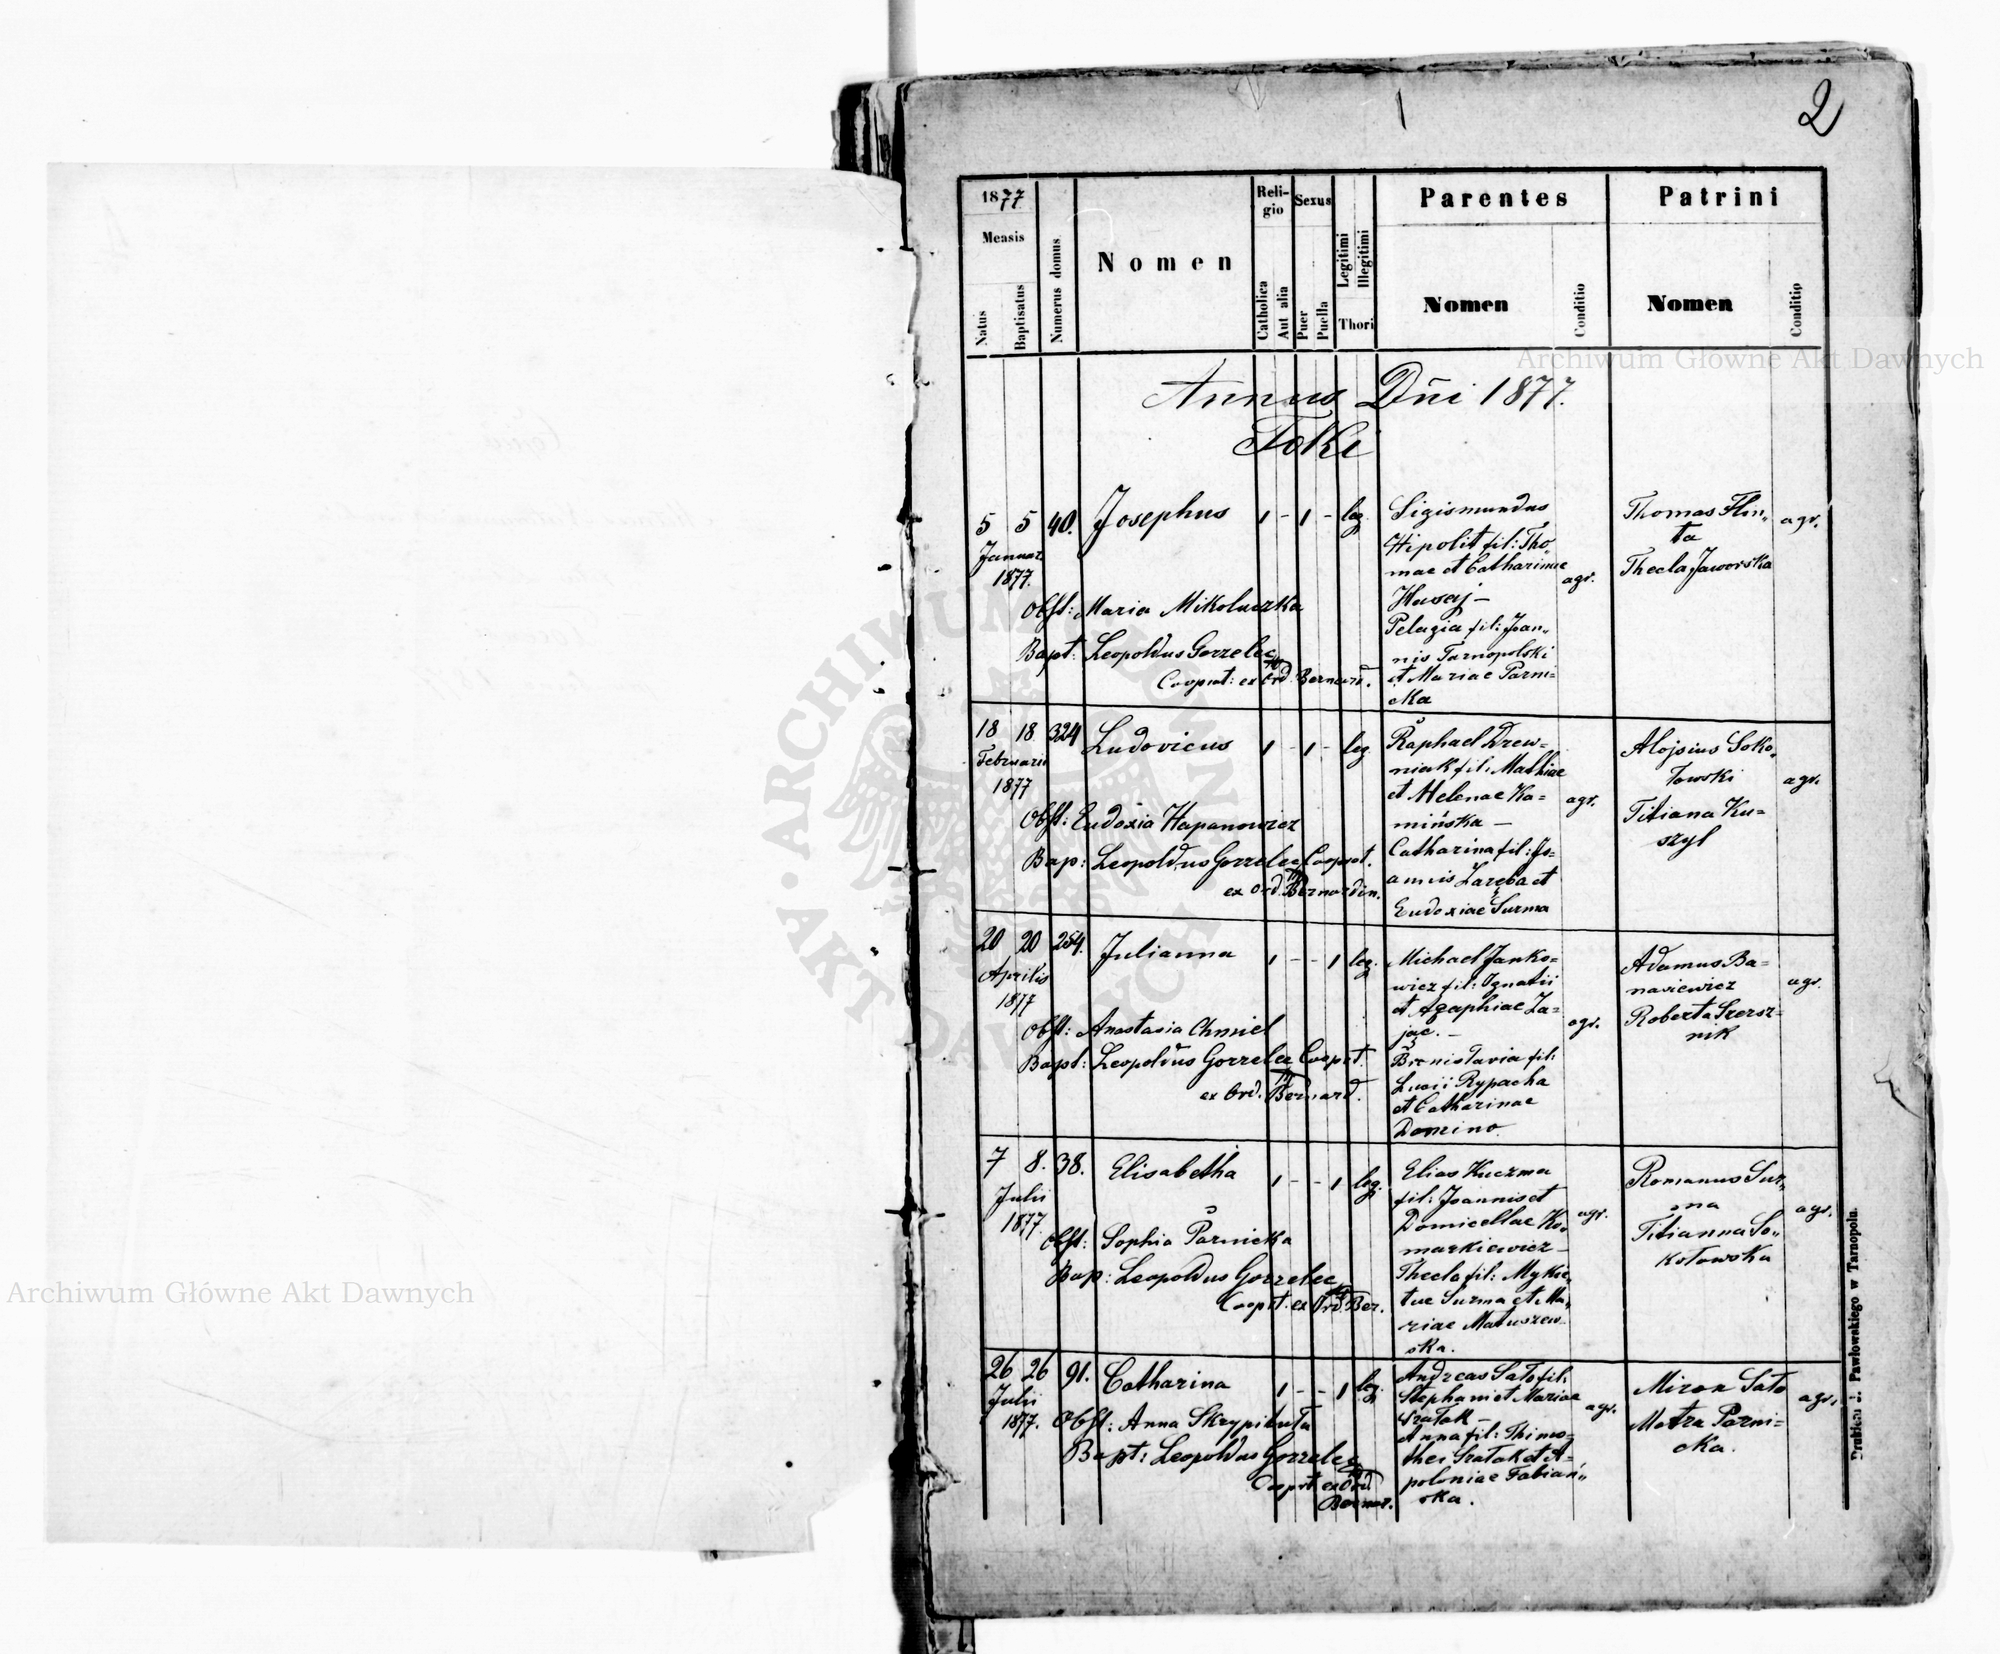 2
1877
Mensis
Natus
Baptisatus
Numerus domus
Nomen
Religio
Catholica
Aut alia
Sexus
Puer
Puella
Legitimi
Illegitimi
Thori
Parentes
Nomen
Conditio
Patrini
Nomen
Conditio
Annus Dñi 1877.
Toki
5 5 40. Josephus 1 - 1 - leg.
Januar.
1877.
Obst: Maria Mikoluczka
Bapt: Leopoldus Gorzelec
Cooprat: ex Ord. Bernard.
Sigismundus
Hipolit fil: Tho„
mae et Catharinae
Husaj —
Pelagia fil: Joan„
nis Tarnopolski
et Mariae Parni=
cka
agr.
Thomas Flin„
ta
Thecla Jaworska
agr.
18 18 324 Ludovicus 1 - 1 - leg
Februarii
1877
Obst: Eudoxia Hapanowicz
Bap: Leopoldus Gorzelec Cooprat.
ex Ord. Bernardin.
Raphael Drew=
niak fil: Mathiae
et Helenae Ka=
mińska —
Catharina fil: Jo=
annis Zaręba et
Eudoxiae Surma
agr.
Alojsius Soko„
łowski
Titiana Ku=
szyl
agr.
20 20 254. Julianna 1 - - 1 leg.
Aprilis
1877
Obst: Anastasia Chmiel
Bapt: Leopoldus Gorzelec Cooprt.
ex Ord. Bernard.
Michael Janko=
wicz fil: Ignatii
et Agaphiae Za=
jąc. —
Bronislavia fil:
Lucii Rypacha
et Catharinae
Domino
agr.
Adamus Ba=
nasiewicz
Roberta Szersz=
nik
agr.
7 8. 38. Elisabetha 1 - - 1 leg.
Julii
1877.
Obst: Sophia Parnicka
Bap: Leopoldus Gorzelec
Cooprt. ex Ord. Ber.
Elias Kuczma
fil: Joannis et
Domicellae Ko„
markiewicz —
Thecla fil: Mykie„
tue Surma et Ma„
riae Matuszew„
ska.
agr.
Romanus Sur„
ma
Titianna So„
kołowska
agr.
26 26 91. Catharina 1 - - 1 leg.
Julii
1877. Obst: Anna Skrypituta
Bapt: Leopoldus Gorzelec
Cooprt ex Ord.
Bernar.
Andreas Sato fil:
Stephani et Mariae
Sratak —
Anna fil: Thimo=
thei Sratak et A=
poloniae Fabian„
ska.
agr.
Miron Sato
Matra Parni=
cka.
agr.
Drukiem J. Pawłowskiego w Tarnopolu.
Archiwum Główne Akt Dawnych
Archiwum Główne Akt Dawnych
ARCHIWUM GŁÓWNE AKT DAWNYCH